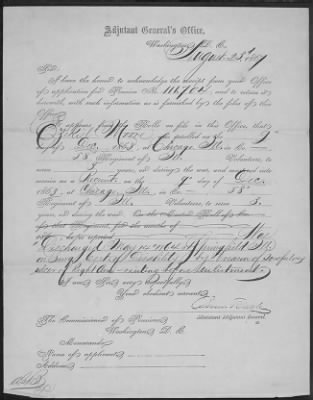 Adjutant General's Office,
Washington, D. C.,
August 23d
Sir:
I have the honor to acknowledge the receipt from your Office
of application for Pension No. 116704, and to return it
herewith, with such information as is furnished by the files of this
Office.
It appears from the Rolls on file in this Office, that
was enrolled on the 9"
day of Dec, 1863, at Chicago Ills in the
58" Regiment of Ill Volunteers, to
serve 3 years, or during the war, and was mustered into
service as a on the 9" day of Dec
1863, at Chicago, Ills, in the 58"
Regiment of Ill Volunteers, to serve 3
years, or during the war. On the Muster Roll of
that Regiment, for the months of
he is reported
Discharged May 14 1864 at Springfield Ills
on Surg Certif of Disability by reason of
I am, Sir, very respectfully,
Your obedient servant,
Assistant Adjutant General.
The Commissioner of Pensions,
Washington, D. C.
Memoranda:
Name of applicant,
Address,